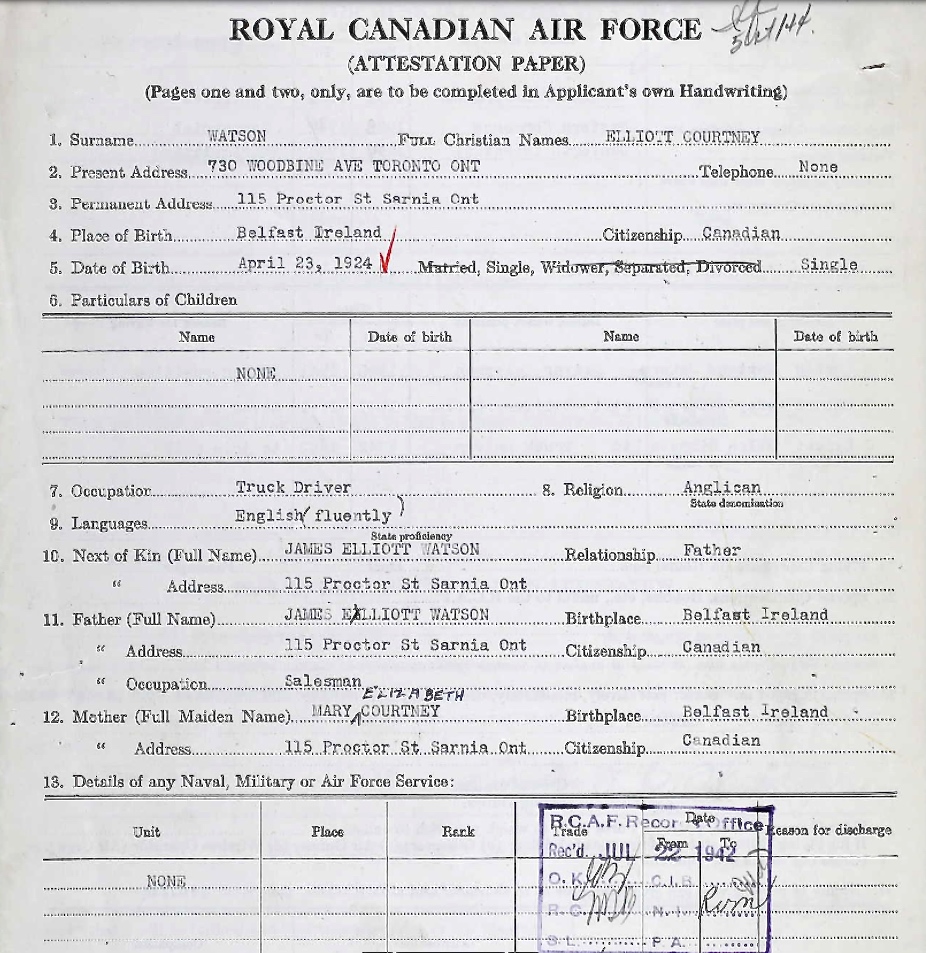 ROYAL CANADIAN AIR FORCE
(ATTESTATION PAPER)
(Pages one and two, only, are to be completed in Applicant's own Handwriting)
1. Surname WATSON FULL Christian Names ELLIOTT COURTNEY
2. Present Address 730 WOODBINE AVE TORONTO ONT Telephone None
3. Permanent Address 115 Proctor St Sarnia Ont
4. Place of Birth Belfast Ireland Citizenship Canadian
5. Date of Birth April 23, 1924 Married, Single, Widower, Separated, Divorced Single
6. Particulars of Children
Name Date of birth Name Date of birth
NONE
7. Occupation Truck Driver 8. Religion Anglican
State denomination
9. Languages English (fluently)
State proficiency
10. Next of Kin (Full Name) JAMES ELLIOTT WATSON Relationship Father
" Address 115 Proctor St Sarnia Ont
11. Father (Full Name) JAMES ELLIOTT WATSON Birthplace Belfast Ireland
" Address 115 Proctor St Sarnia Ont Citizenship Canadian
" Occupation Salesman
ELIZABETH
12. Mother (Full Maiden Name) MARY COURTNEY Birthplace Belfast Ireland
" Address 115 Proctor St Sarnia Ont Citizenship Canadian
13. Details of any Naval, Military or Air Force Service:
Unit Place Rank Trade Date From To Reason for discharge
NONE
R.C.A.F. Records Office
Rec'd. JUL 22 1942
O.K. C.I.B.
R.C. N.I.
S.L. P.A.